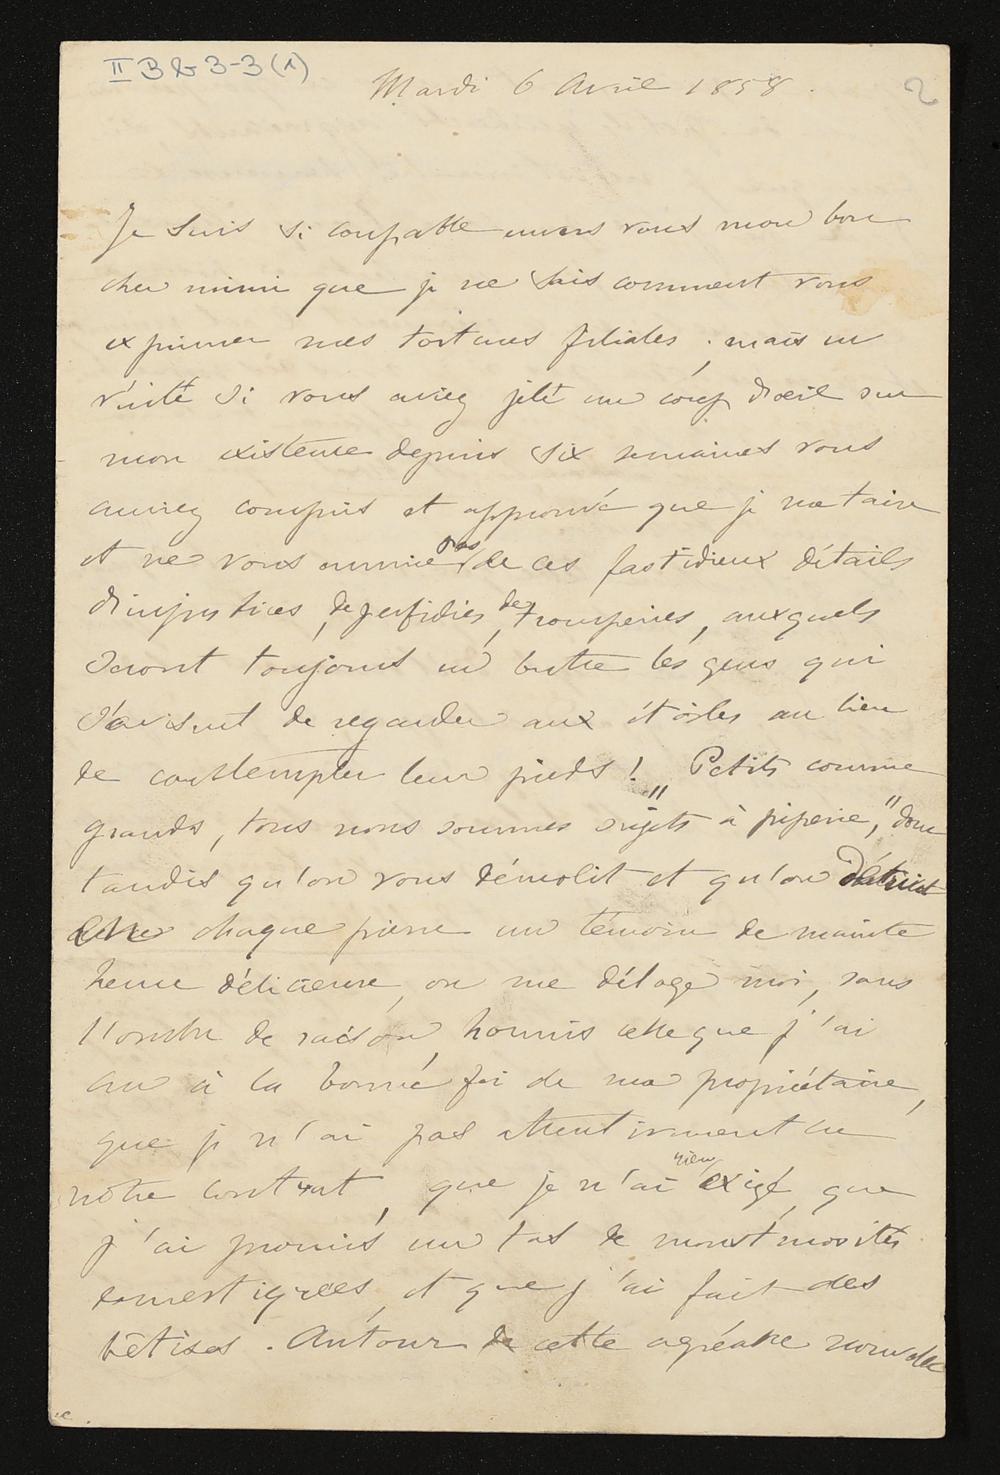 II B & 3-3 (1)
Mardi 6 Avril 1858.
2
Je suis si coupable envers vous mon bon
cher mimi que je ne sais comment vous
exprimer mes tortures filiales. mais en
vérité si vous aviez jeté un coup d'oeil sur
mon existence depuis six semaines vous
auriez compris et approuvé que je me taire
et ne vous ennuie pas de ces fastidieux détails
d'injustices, de perfidies, de tromperies, auxquels
seront toujours en butte les gens qui
s'avisent de regarder aux étoiles au lieu
de contempler leur pieds ! Petits comme
grands, tous nous sommes "sujets à piperie," donc
tandis qu'on vous démolit et qu'on détruit
chaque pierre un témoin de mainte
heure délicieuse, on me déloge moi, sans
l'ombre de raison, hormis celle que j'ai
cru à la bonne foi de ma propriétaire,
que je n'ai pas attentivement lu
notre contrat, que je n'ai rien exigé, que
j'ai promis un tas de monstruosités
domestiquées, et que j'ai fait des
bêtises. Autour de cette agréable nouvelle